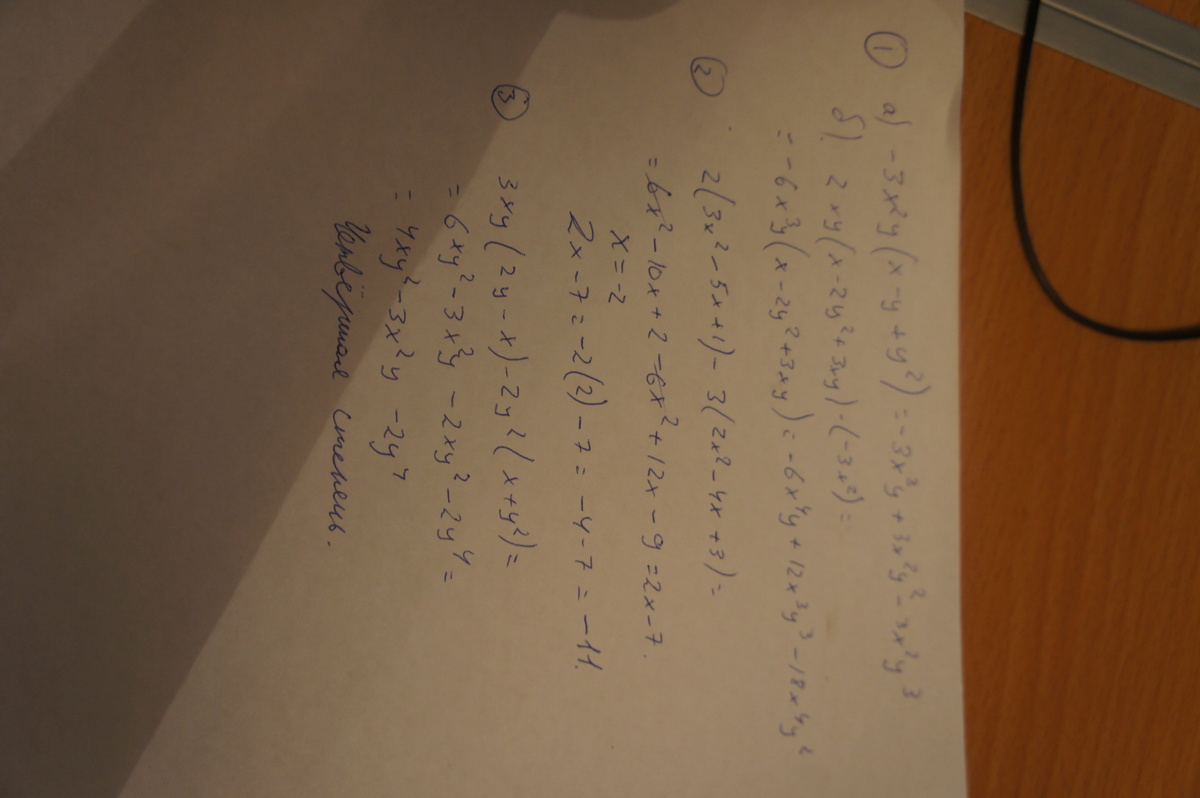 ① а) -3x²y(x-y+y²)=-3x³y+3x²y²-3x²y³
б) 2xy(x-2y²+3xy)·(-3x²)=
=-6x³y(x-2y²+3xy)=-6x⁴y+12x³y³-18x⁴y²
② 2(3x²-5x+1)-3(2x²-4x+3)=
=6x²-10x+2-6x²+12x-9=2x-7.
x=-2
2x-7=-2(2)-7=-4-7=-11.
③ 3xy(2y-x)-2y²(x+y²)=
=6xy²-3x²y-2xy²-2y⁴=
=4xy²-3x²y-2y⁴
Четвёртая степень.